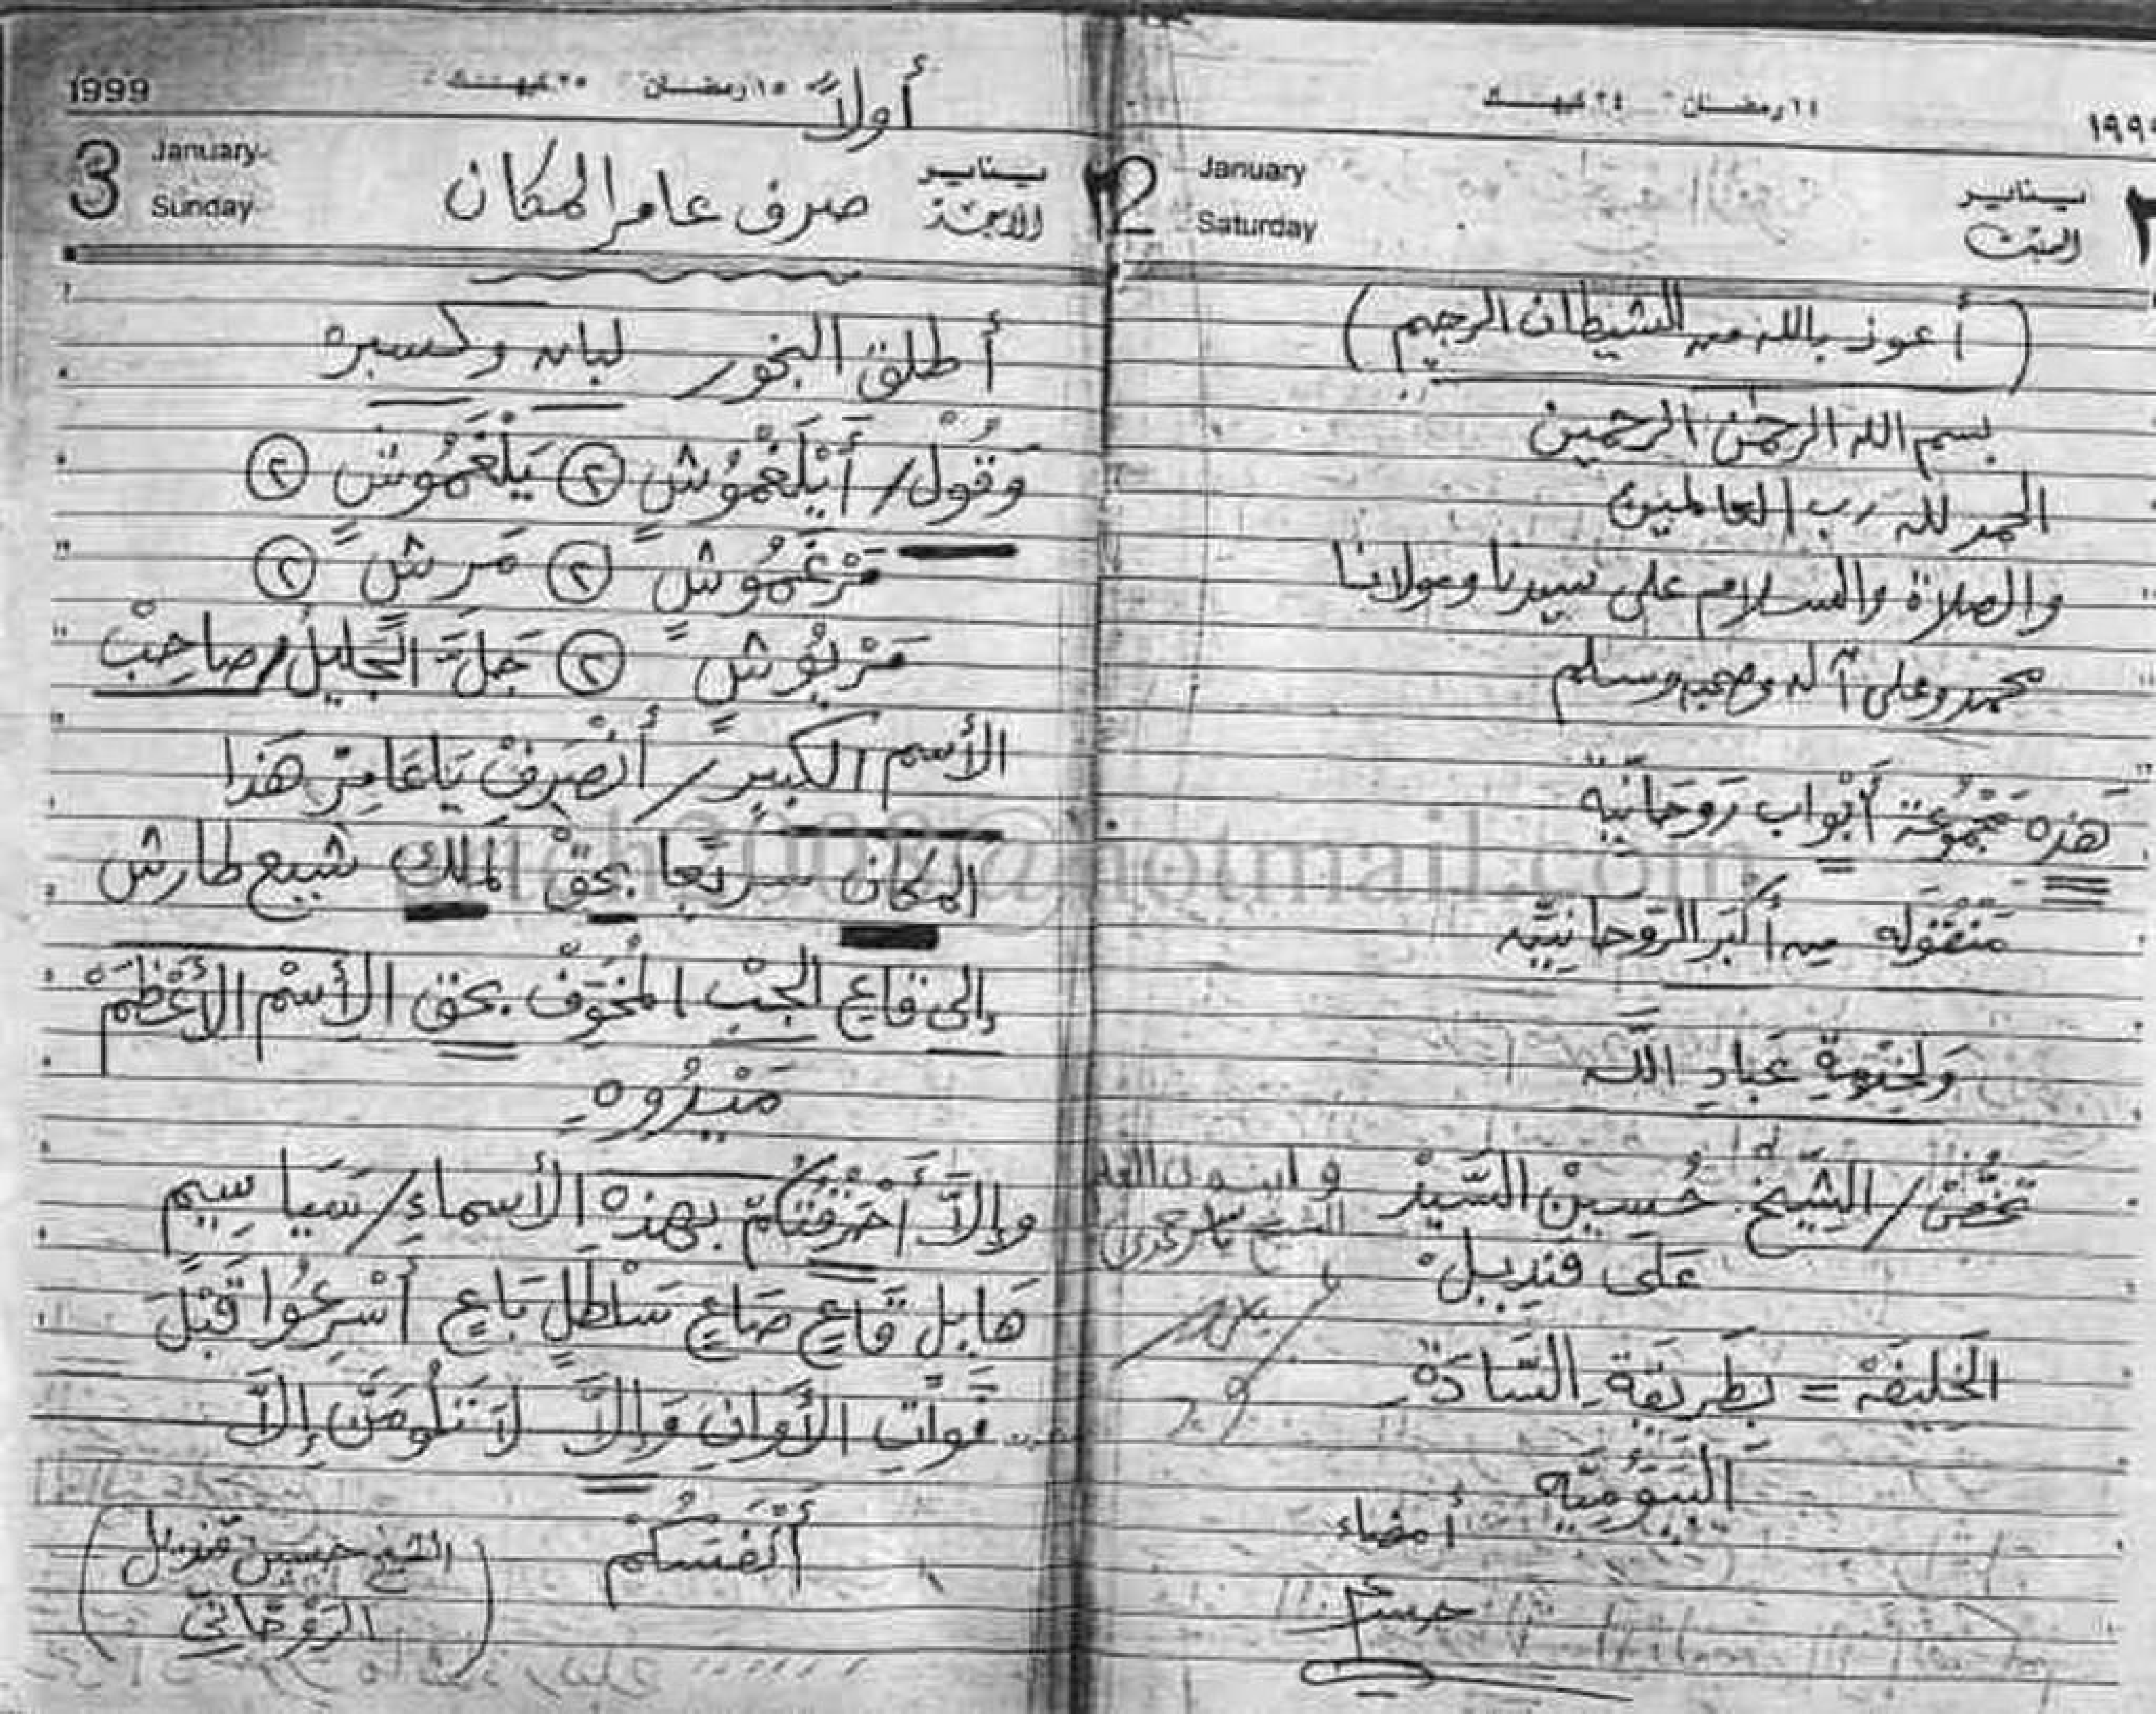 ١٩٩٩
١٤ رمضان ٢٤ كيهك
٢ يناير January 2
السبت Saturday
(أعوذ بالله من الشيطان الرجيم)
بسم الله الرحمن الرحمين
الحمد لله رب العالمين
والصلاة والسلام على سيدنا ومولانا
محمد وعلى آله وصحبه وسلم
هَذه مَجْمُوعة أَبْواب رَوحَانيّه
مَنقُوله من أكبَر الرَوحَانِييّه
وَلخِدْمِةِ عَبادِ اللَّه
تَخُصّ / الشِّيخ حُسِينْ السَّيدْ
عَلَى قنديل
الخَليفَة = بطَريقةِ السَّادَة
البَيّومِيّه
أمضاء
1999
١٥ رمضان ٢٥ كيهك
أولاً
3 January يناير ٣
Sunday الأحد
صرف عامر المكان
أطلق البخور لبان وكسبره
وَقُولْ / أَيْلَغْمُوشٍ ② يَلْغَمُوشٍ ②
مَرْغَمُوشٍ ② مَرشٍ ②
مَرْيُوشٍ ② جَلَّ الجَليلُ / صاحِبْ
الأسم الكبيرِ / أنْصَرِفْ يَا عَامِرْ هَذا
المكان سريعًا بحقْ الملك شبيع طارش
إلى قاعِ الجُبْ المُخَوّفْ بحق الأسْم الأَعْظَمْ
وإلاَّ أحْرَقتَكمْ بهذه الأسماءِ / سَيَا سِيمِ
هَابلٍ قَاعٍ صَاعٍ سَلْطَلٍ بَاعٍ أَسْرِعُوا قَبْلَ
فَواتِ الأَوانِ وَإلاَّ لاَ تَلُومَنَّ إلاَّ
أَنْفُسَكُمْ
(الشيخ حسين قنديل
الرَوْحَانِي)